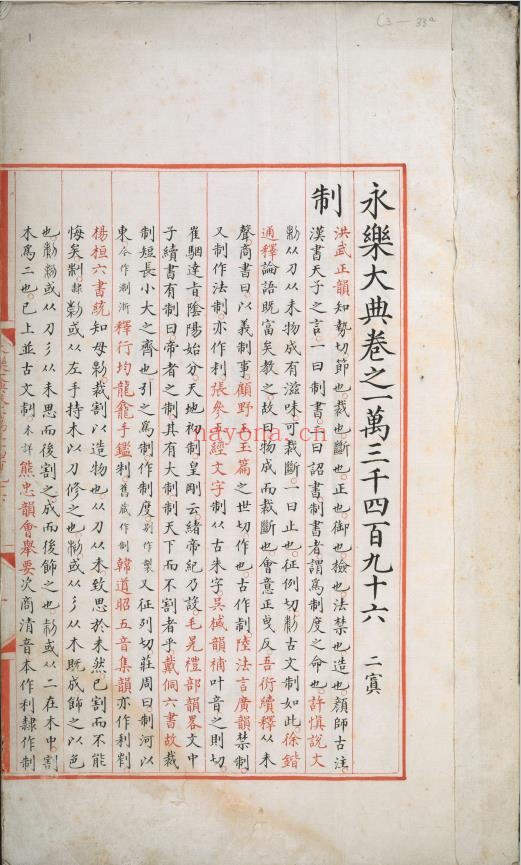 C3—33a
1
永樂大典卷之一萬三千四百九十六 二寘
制
洪武正韻知勢切節也。裁也斷也。正也。御也。檢也。法禁也。造也。顏師古注。
漢書天子之言。一曰制書。二曰詔書。制書者謂爲制度之命也。許愼說文
㓡从刀从未物成有滋味可裁斷。一曰止也。征例切㓡古文制如此。徐鍇
通釋論語既富矣教之。故曰物成而裁斷也會意正曳反。吾衍續釋从未
聲。商書曰以義制事。顧野王玉篇之世切作也。古作𠛐陸法言廣韻禁制
又制作法制。亦作利張參五經文字制从古朱字吳棫韻補叶音之則切。
崔駰達旨陰陽始分。天地初制皇剛云緒帝紀乃設。毛晃禮部韻畧文中
子續書有制曰帝者之制其有大制制天下而不割者乎戴侗六書故裁
制短長小大之齊也引之爲制作制度別作製又征列切莊周曰制河以
東今作制淛釋行均龍龕手鑑制舊藏作制韓道昭五音集韻亦作利
楊桓六書統知母㓡裁割以造物也。从刀从未致思於未然。已割而不能
悔矣制隸㓡或从左手持木以刀修之也。㓡或从彡从木既成飾之以色
也㓡㓡或从刀彡从未思而後割之成而後飾之也㓡或从二在木中。割
木爲二也。已上並古文制未詳熊忠韻會舉要次商清音本作利隸作制
nayona.cn